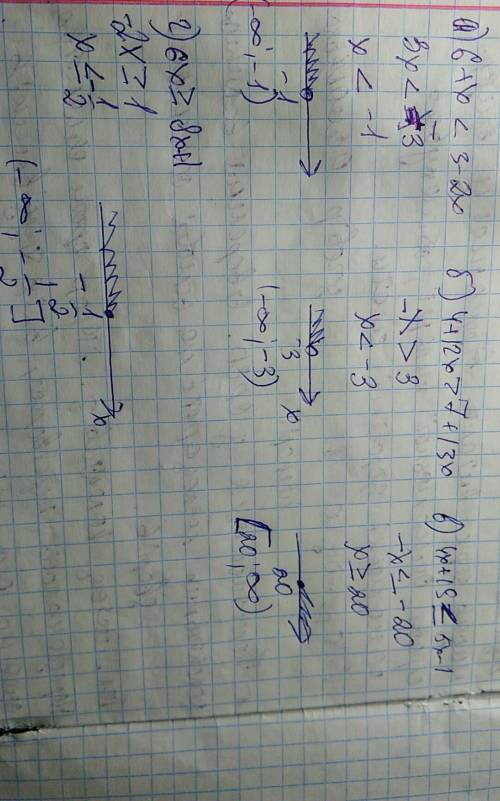 а) 6+x < 3-2x
3x < -3
x < -1
-1
(-∞; -1)
б) 4+12x > 7+13x
-x > 3
x < -3
-3
x
(-∞; -3)
в) 4x+19 ≤ 5x-1
-x ≤ -20
x ≥ 20
20
[20; ∞)
г) 6x ≥ 8x+1
-2x ≥ 1
x ≤ -1/2
-1/2
x
(-∞; -1/2]